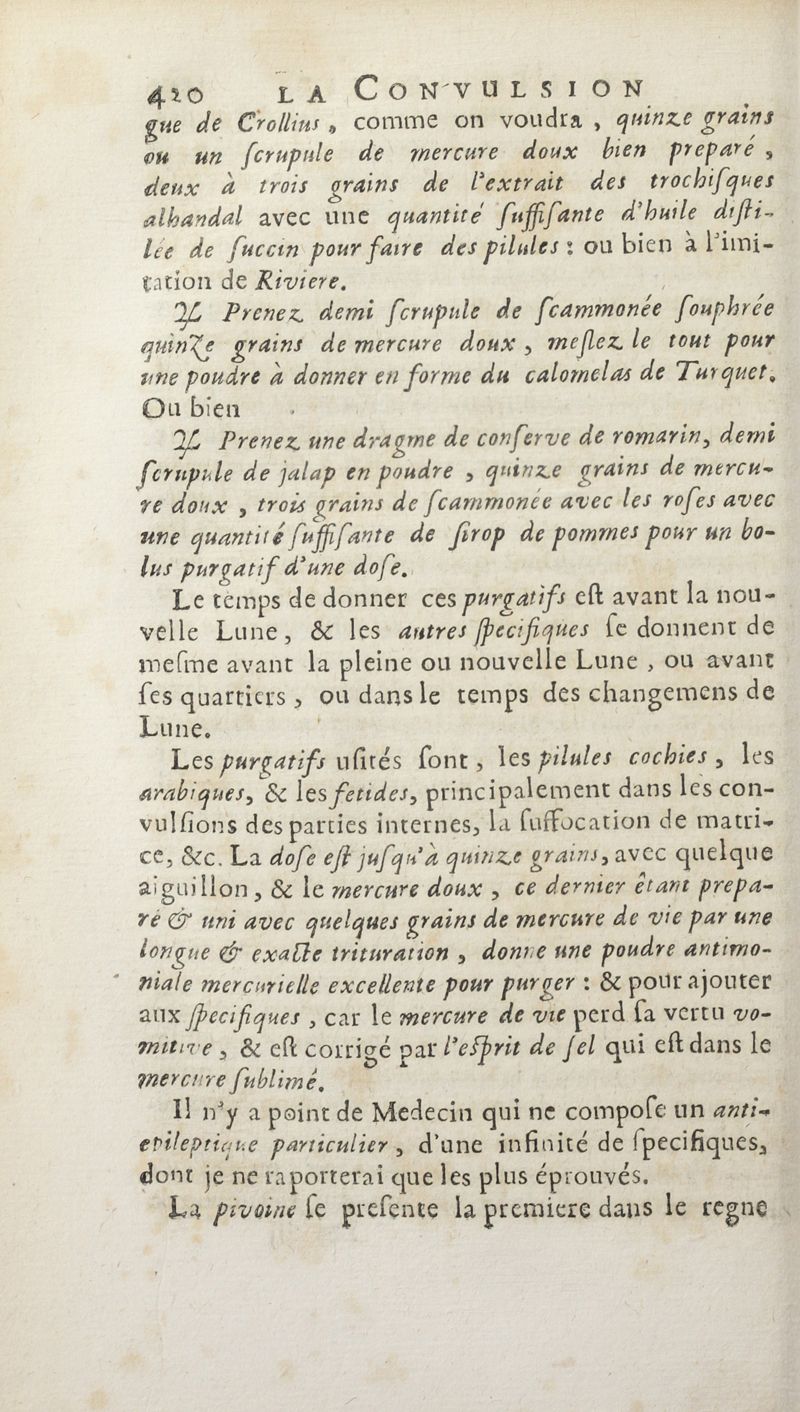 420 LA CONVULSION
gue de Crollius, comme on voudra, quinze grains
ou un ſcrupule de mercure doux bien preparé,
deux à trois grains de l'extrait des trochiſques
alhandal avec une quantité ſuffiſante d'huile diſti-
lée de ſuccin pour faire des pilules : ou bien à l'imi-
tation de Riviere.
♃ Prenez demi ſcrupule de ſcammonée ſouphrée
quinze grains de mercure doux, meſlez le tout pour
une poudre à donner en forme du calomelas de Turquet.
Ou bien
♃ Prenez une dragme de conſerve de romarin, demi
ſcrupule de jalap en poudre, quinze grains de mercu-
re doux, trois grains de ſcammonée avec les roſes avec
une quantité ſuffiſante de ſirop de pommes pour un bo-
lus purgatif d'une doſe.
Le temps de donner ces purgatifs eſt avant la nou-
velle Lune, & les autres ſpecifiques ſe donnent de
meſme avant la pleine ou nouvelle Lune, ou avant
ſes quartiers, ou dans le temps des changemens de
Lune.
Les purgatifs uſités ſont, les pilules cochies, les
arabiques, & les fetides, principalement dans les con-
vulſions des parties internes, la ſuffocation de matri-
ce, &c. La doſe eſt juſqu'à quinze grains, avec quelque
aiguillon, & le mercure doux, ce dernier êtant prepa-
ré & uni avec quelques grains de mercure de vie par une
longue & exacte trituration, donne une poudre antimo-
niale mercurielle excellente pour purger : & pour ajouter
aux ſpecifiques, car le mercure de vie perd ſa vertu vo-
mitive, & eſt corrigé par l'eſprit de ſel qui eſt dans le
mercure ſublimé.
Il n'y a point de Medecin qui ne compoſe un anti-
epileptique particulier, d'une infinité de ſpecifiques,
dont je ne raporterai que les plus éprouvés.
La pivoine ſe preſente la premiere dans le regne